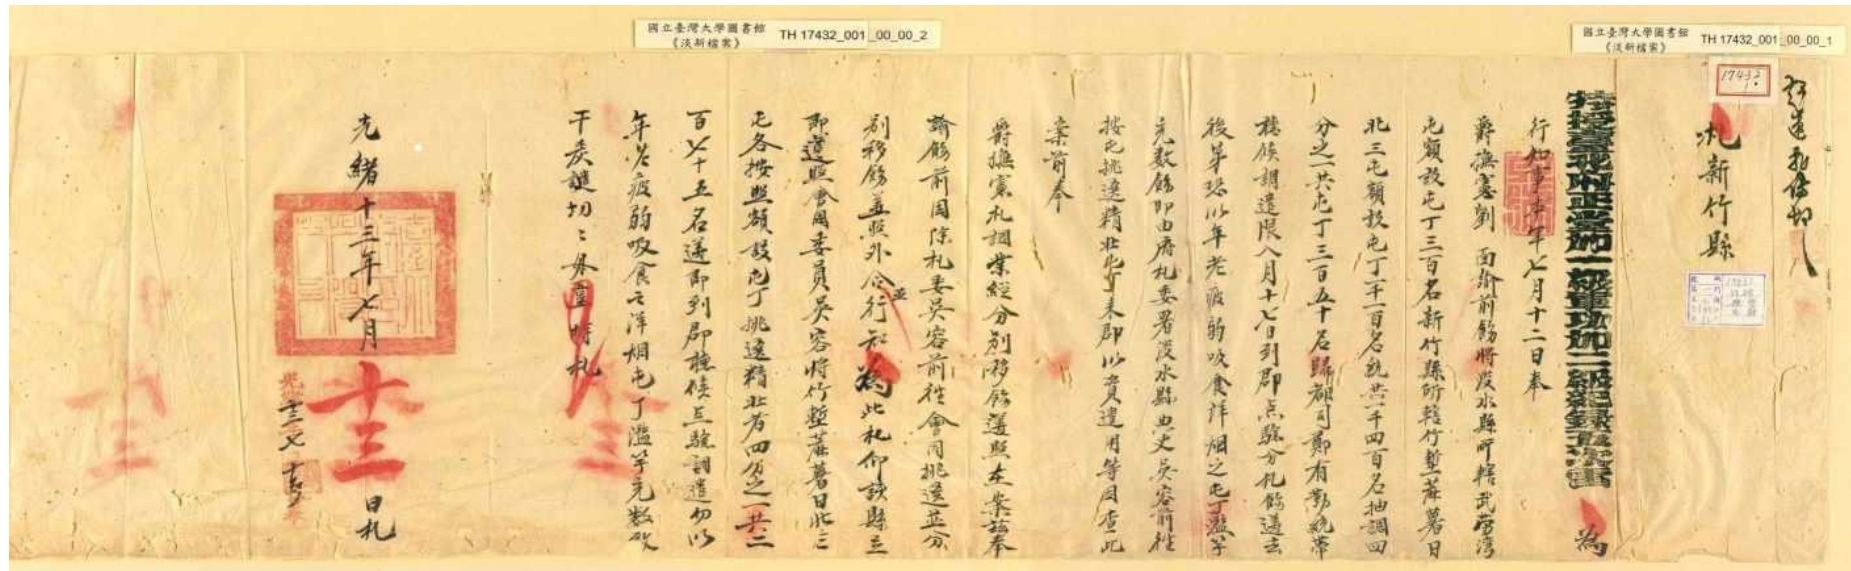 國立臺灣大學圖書館
《淡新檔案》
TH 17432_001_00_00_1
國立臺灣大學圖書館
《淡新檔案》
TH 17432_001_00_00_2
17432
1.
札新竹縣
特授臺北府正堂加一級軍功加二級紀錄五次雷 為
行知事本年七月十二日奉
爵撫憲劉 面諭前飭將淡水縣所轄武朥灣
屯額設屯丁三百名新竹縣所轄竹塹蔴薯日
北三屯額設屯丁一千一百名統共一千四百名抽調四
分之一共屯丁三百五十名歸都司鄭有勤統帶
聽候調遣限八月十七日到郡点驗分札飭遵去
後第恐以年老疲弱吸食洋烟之屯丁濫竽
充数飭即由府札委署淡水縣典史吳容前往
按屯挑選精壯屯丁来郡以資遣用等因查此
案前奉
爵撫憲札調業經分別移飭遵照在案茲奉
諭飭前因除札委吳容前往會同挑選並分
別移飭遵照外合行並知為此札仰該縣立
即遵照會同委員吳容將竹塹蔴薯日北三
屯各按照額設屯丁挑選精壯者四分之一共二
百七十五名遵即到郡聽候点驗調遣勿以
年老疲弱吸食之洋烟屯丁濫竽充数致
干戾譴切切毋違特札
光緒十三年七月 十三 日札